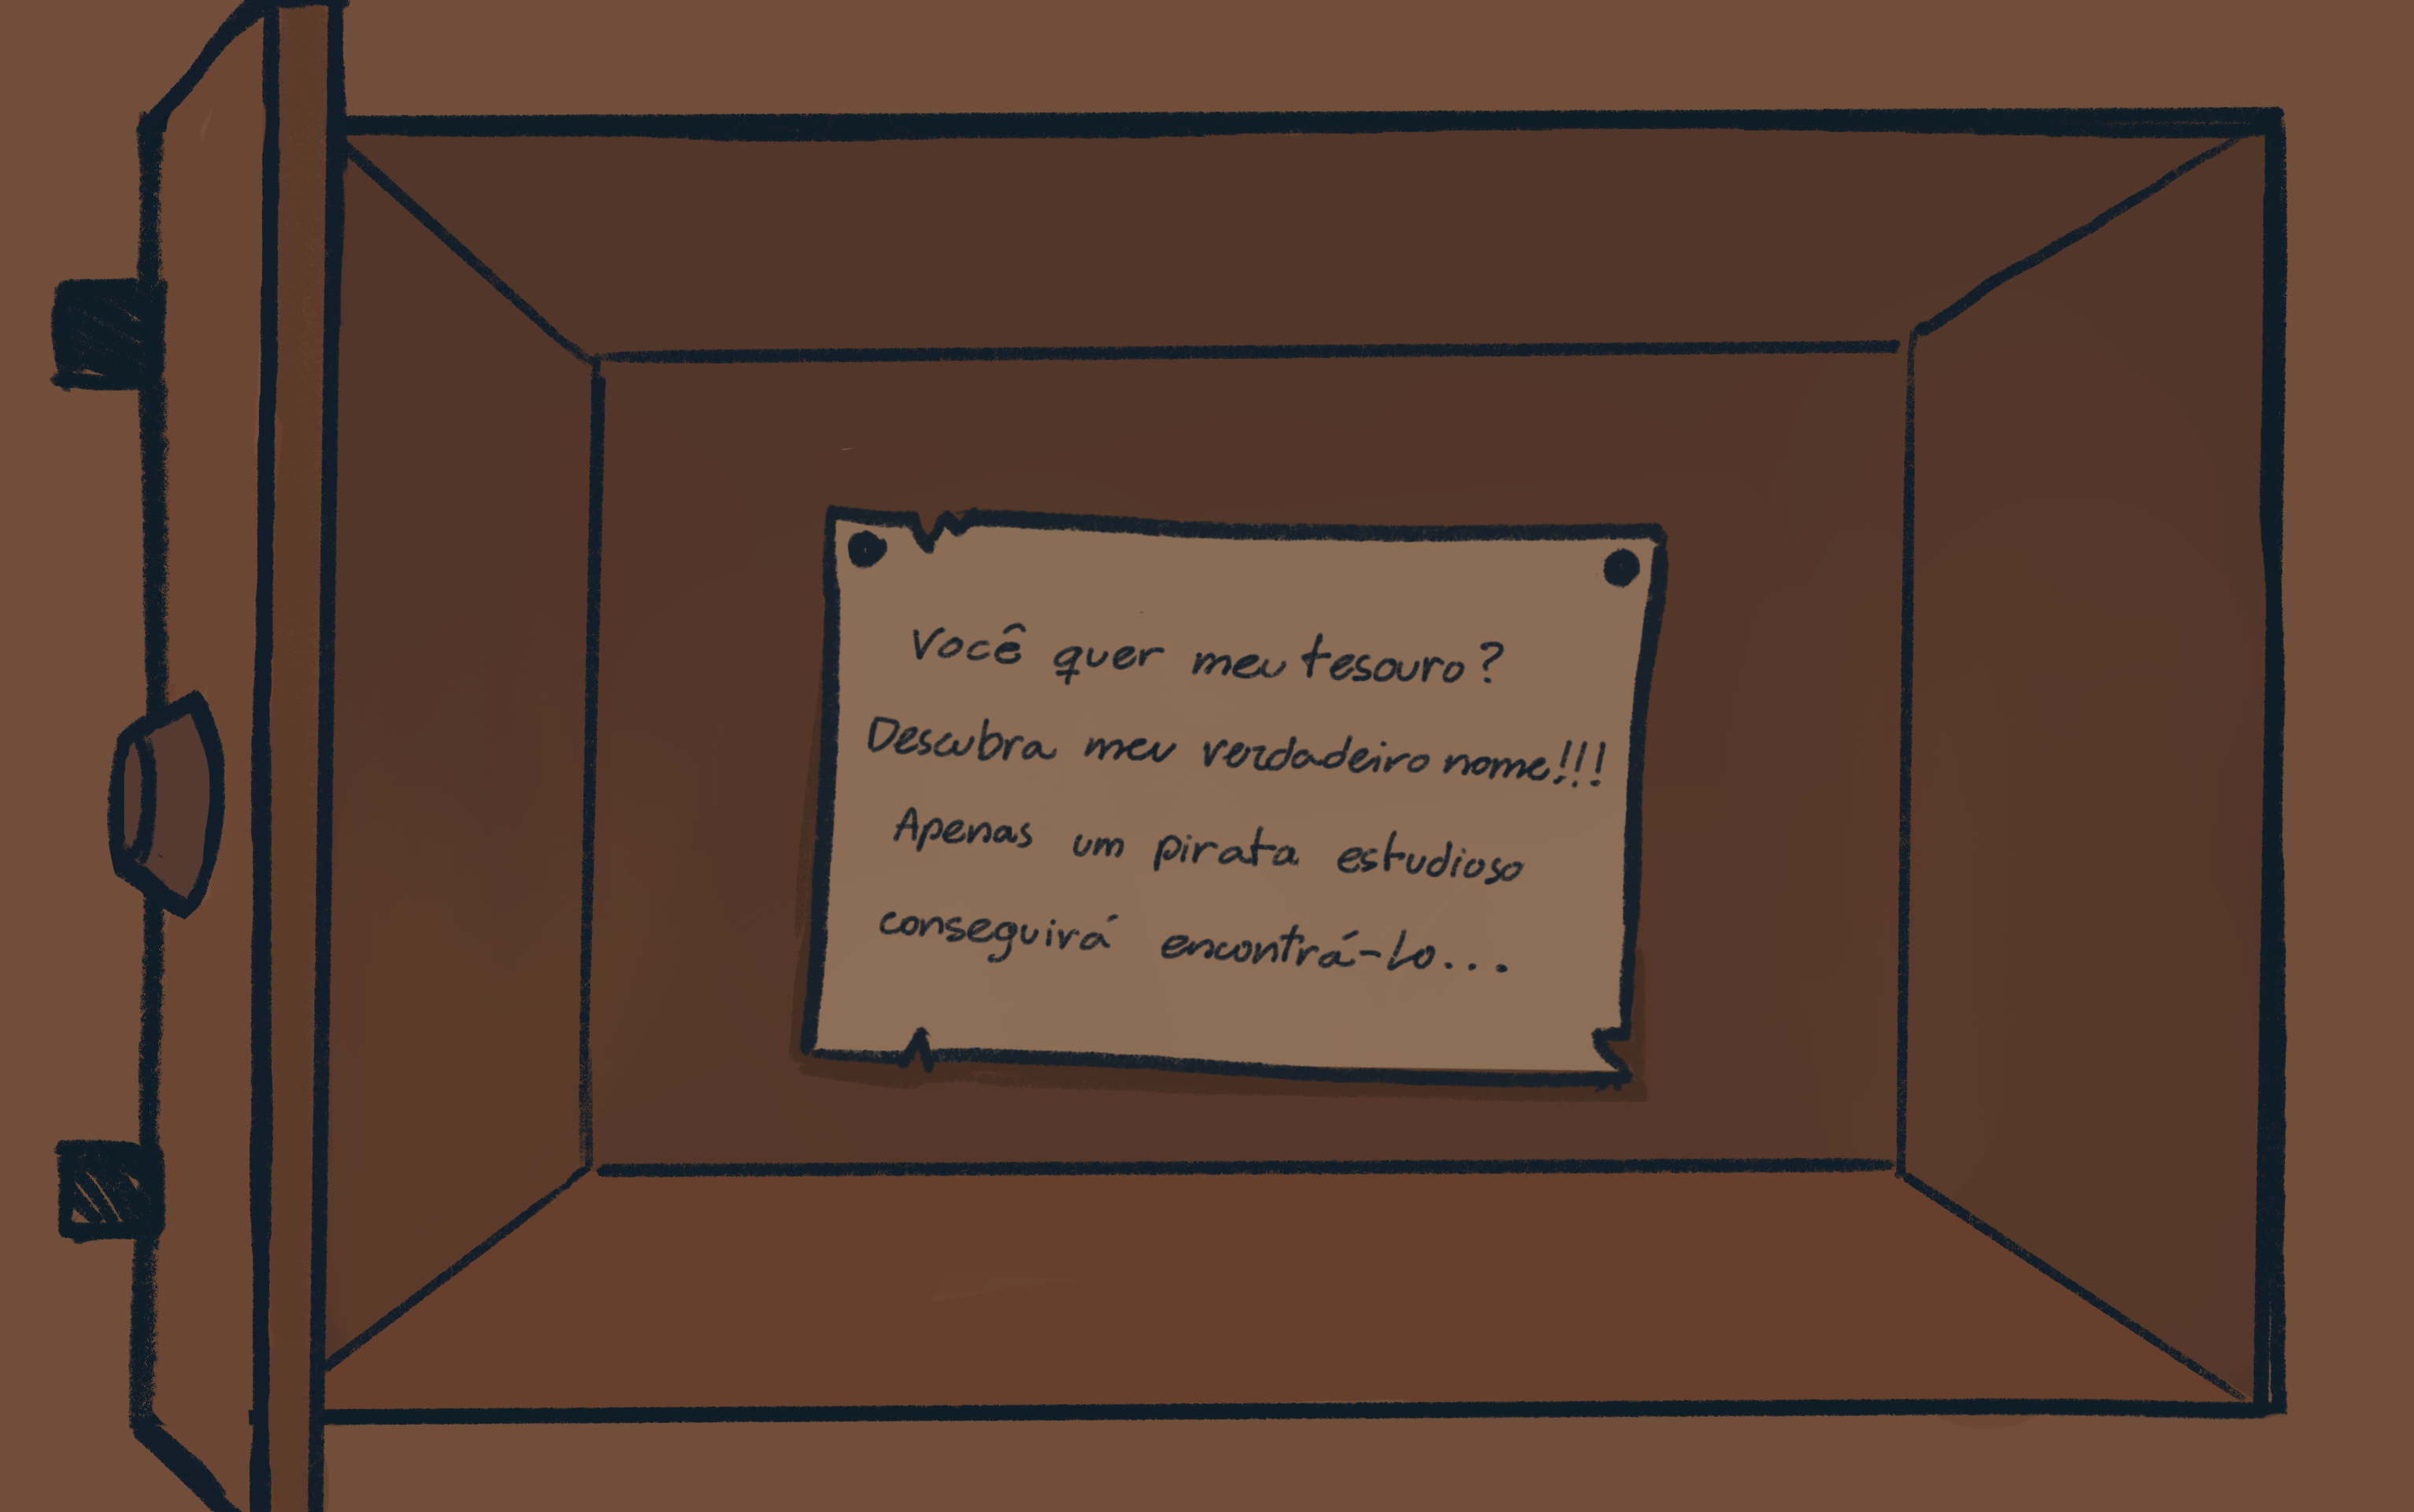 Você quer meu tesouro?
Descubra meu verdadeiro nome!!!
Apenas um pirata estudioso
conseguirá encontrá-lo...